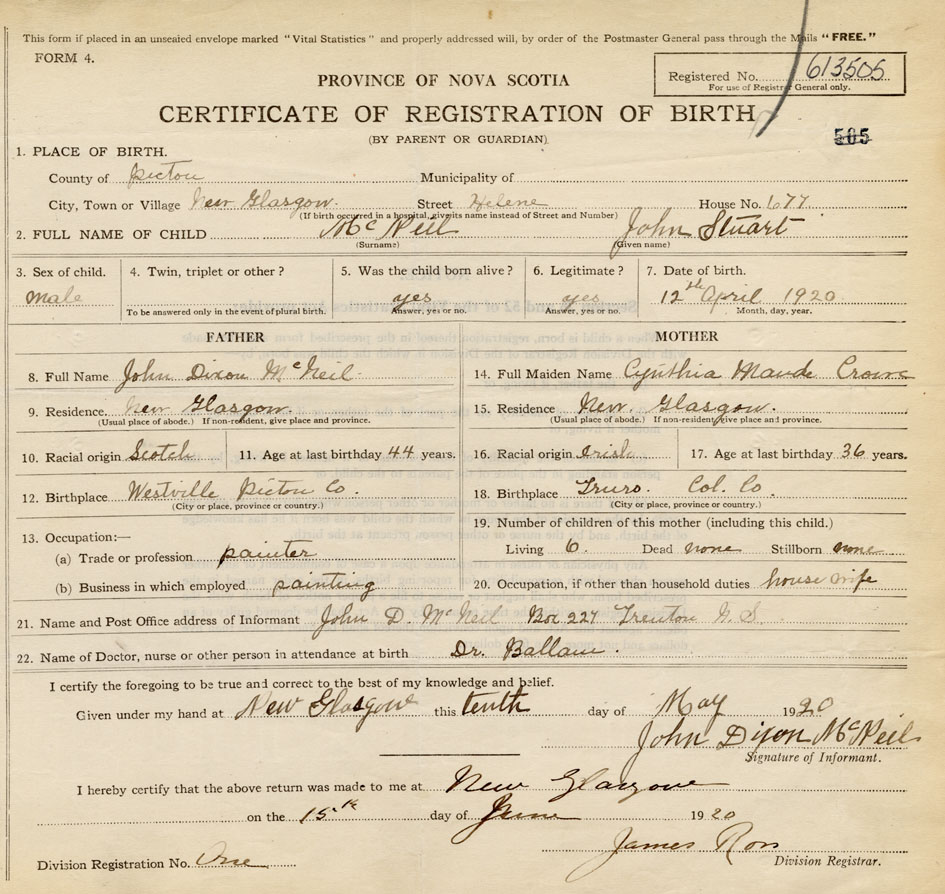 This form if placed in an unsealed envelope marked "Vital Statistics" and properly addressed will, by order of the Postmaster General pass through the Mails "FREE."
FORM 4.
Registered No. 613505
For use of Registrar General only.
PROVINCE OF NOVA SCOTIA
CERTIFICATE OF REGISTRATION OF BIRTH
(BY PARENT OR GUARDIAN)
505
1. PLACE OF BIRTH.
County of Picton Municipality of
City, Town or Village New Glasgow. Street Helene House No. 677
(If birth occurred in a hospital, give its name instead of Street and Number)
2. FULL NAME OF CHILD McNeil John Stuart
(Surname) (Given name)
3. Sex of child. 4. Twin, triplet or other? 5. Was the child born alive? 6. Legitimate? 7. Date of birth.
male yes yes 12th April 1920
To be answered only in the event of plural birth. Answer, yes or no. Answer, yes or no. Month, day, year.
FATHER MOTHER
8. Full Name John Dixon McNeil 14. Full Maiden Name Cynthia Maude Crowe
9. Residence. New Glasgow. 15. Residence New Glasgow.
(Usual place of abode.) If non-resident, give place and province. (Usual place of abode.) If non-resident, give place and province.
10. Racial origin Scotch 11. Age at last birthday 44 years. 16. Racial origin Irish 17. Age at last birthday 36 years.
12. Birthplace Westville Picton Co. 18. Birthplace Truro. Col. Co.
(City or place, province or country.) (City or place, province or country.)
13. Occupation:— 19. Number of children of this mother (including this child.)
(a) Trade or profession painter Living 6. Dead none Stillborn none
(b) Business in which employed painting 20. Occupation, if other than household duties house wife
21. Name and Post Office address of Informant John D. McNeil Box 227 Trenton N.S.
22. Name of Doctor, nurse or other person in attendance at birth Dr. Ballam.
I certify the foregoing to be true and correct to the best of my knowledge and belief.
Given under my hand at New Glasgow this tenth day of May 1920
John Dixon McNeil
Signature of Informant.
I hereby certify that the above return was made to me at New Glasgow
on the 15th day of June 1920
James Ross
Division Registration No. One Division Registrar.